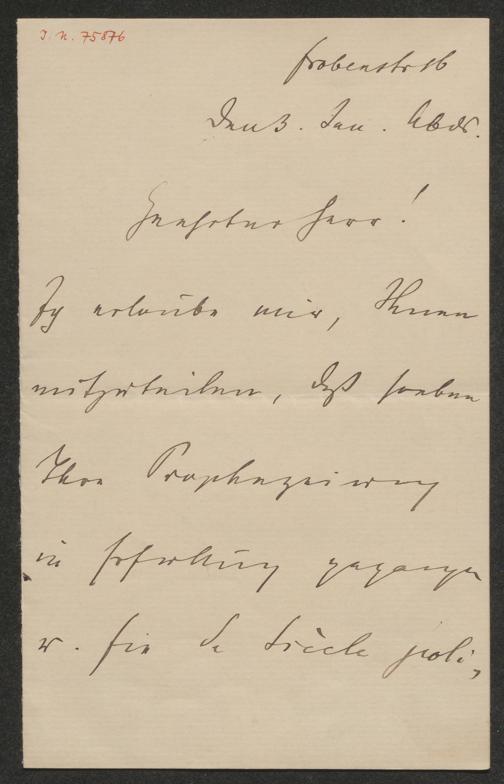 I. N. 75876
Frobenstr 16
Den 3. Jan. Abds.
Geehrter Herr!
Ich erlaube mir, Ihnen
mitzuteilen, daß soeben
Ihre Prophezeiung
in Erfüllung gegangen
u. fin de siècle poli-